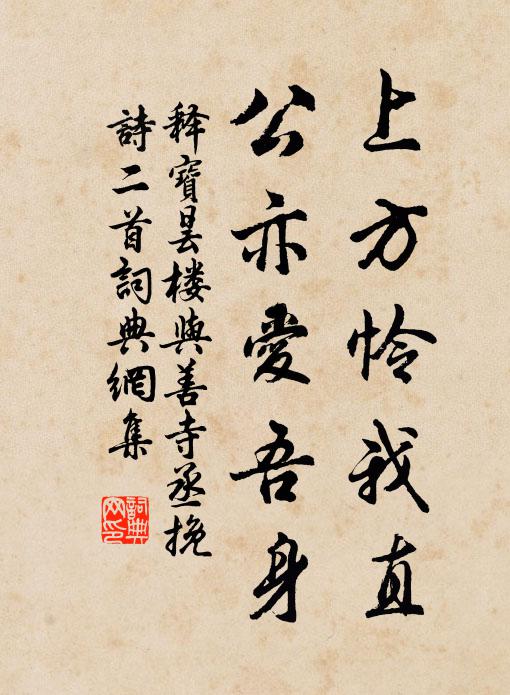 上方怜我直
公亦愛吾身
释寶昙楼與善寺丞挽
詩二首詞典網集
詞典網印